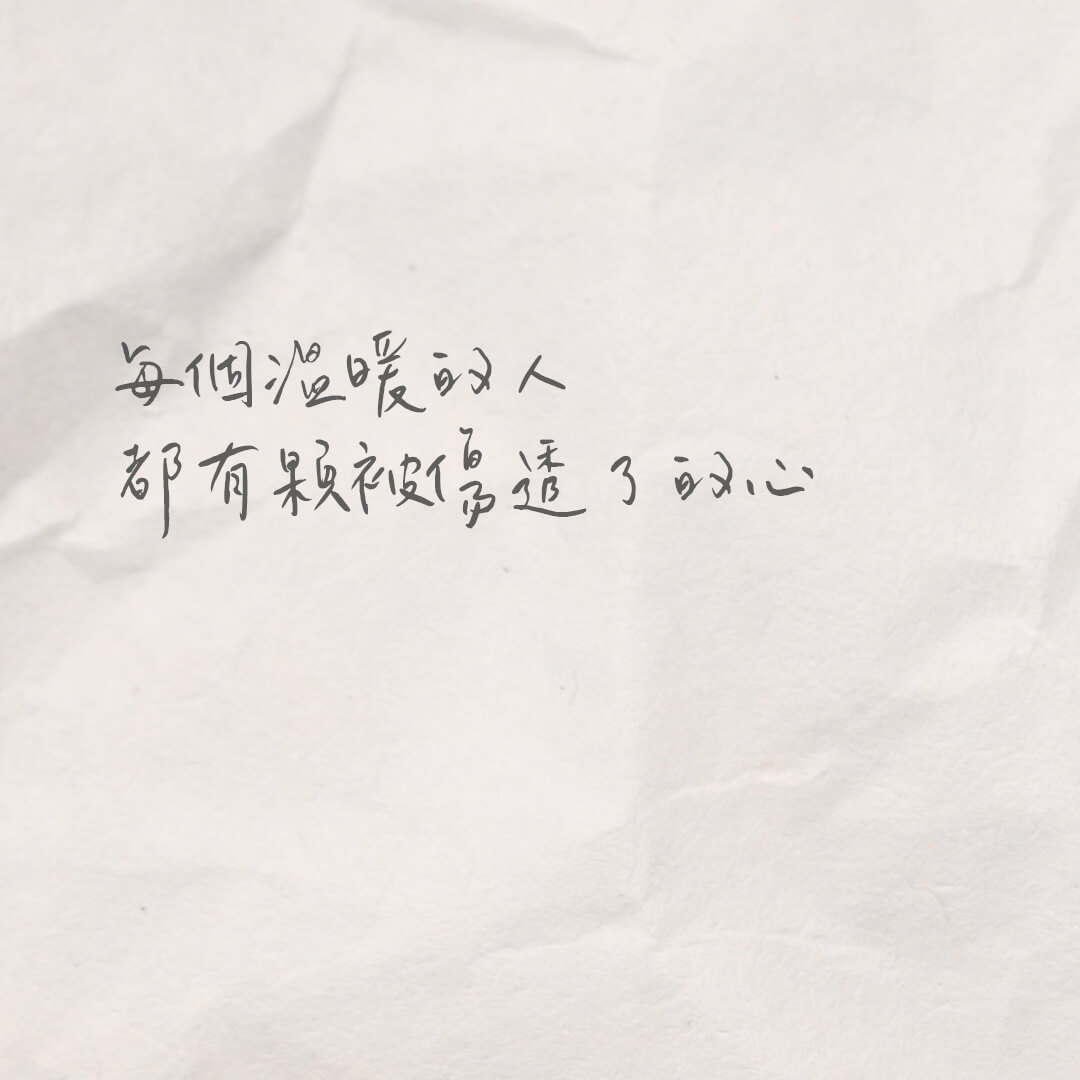 每個溫暖的人
都有顆被傷透了的心